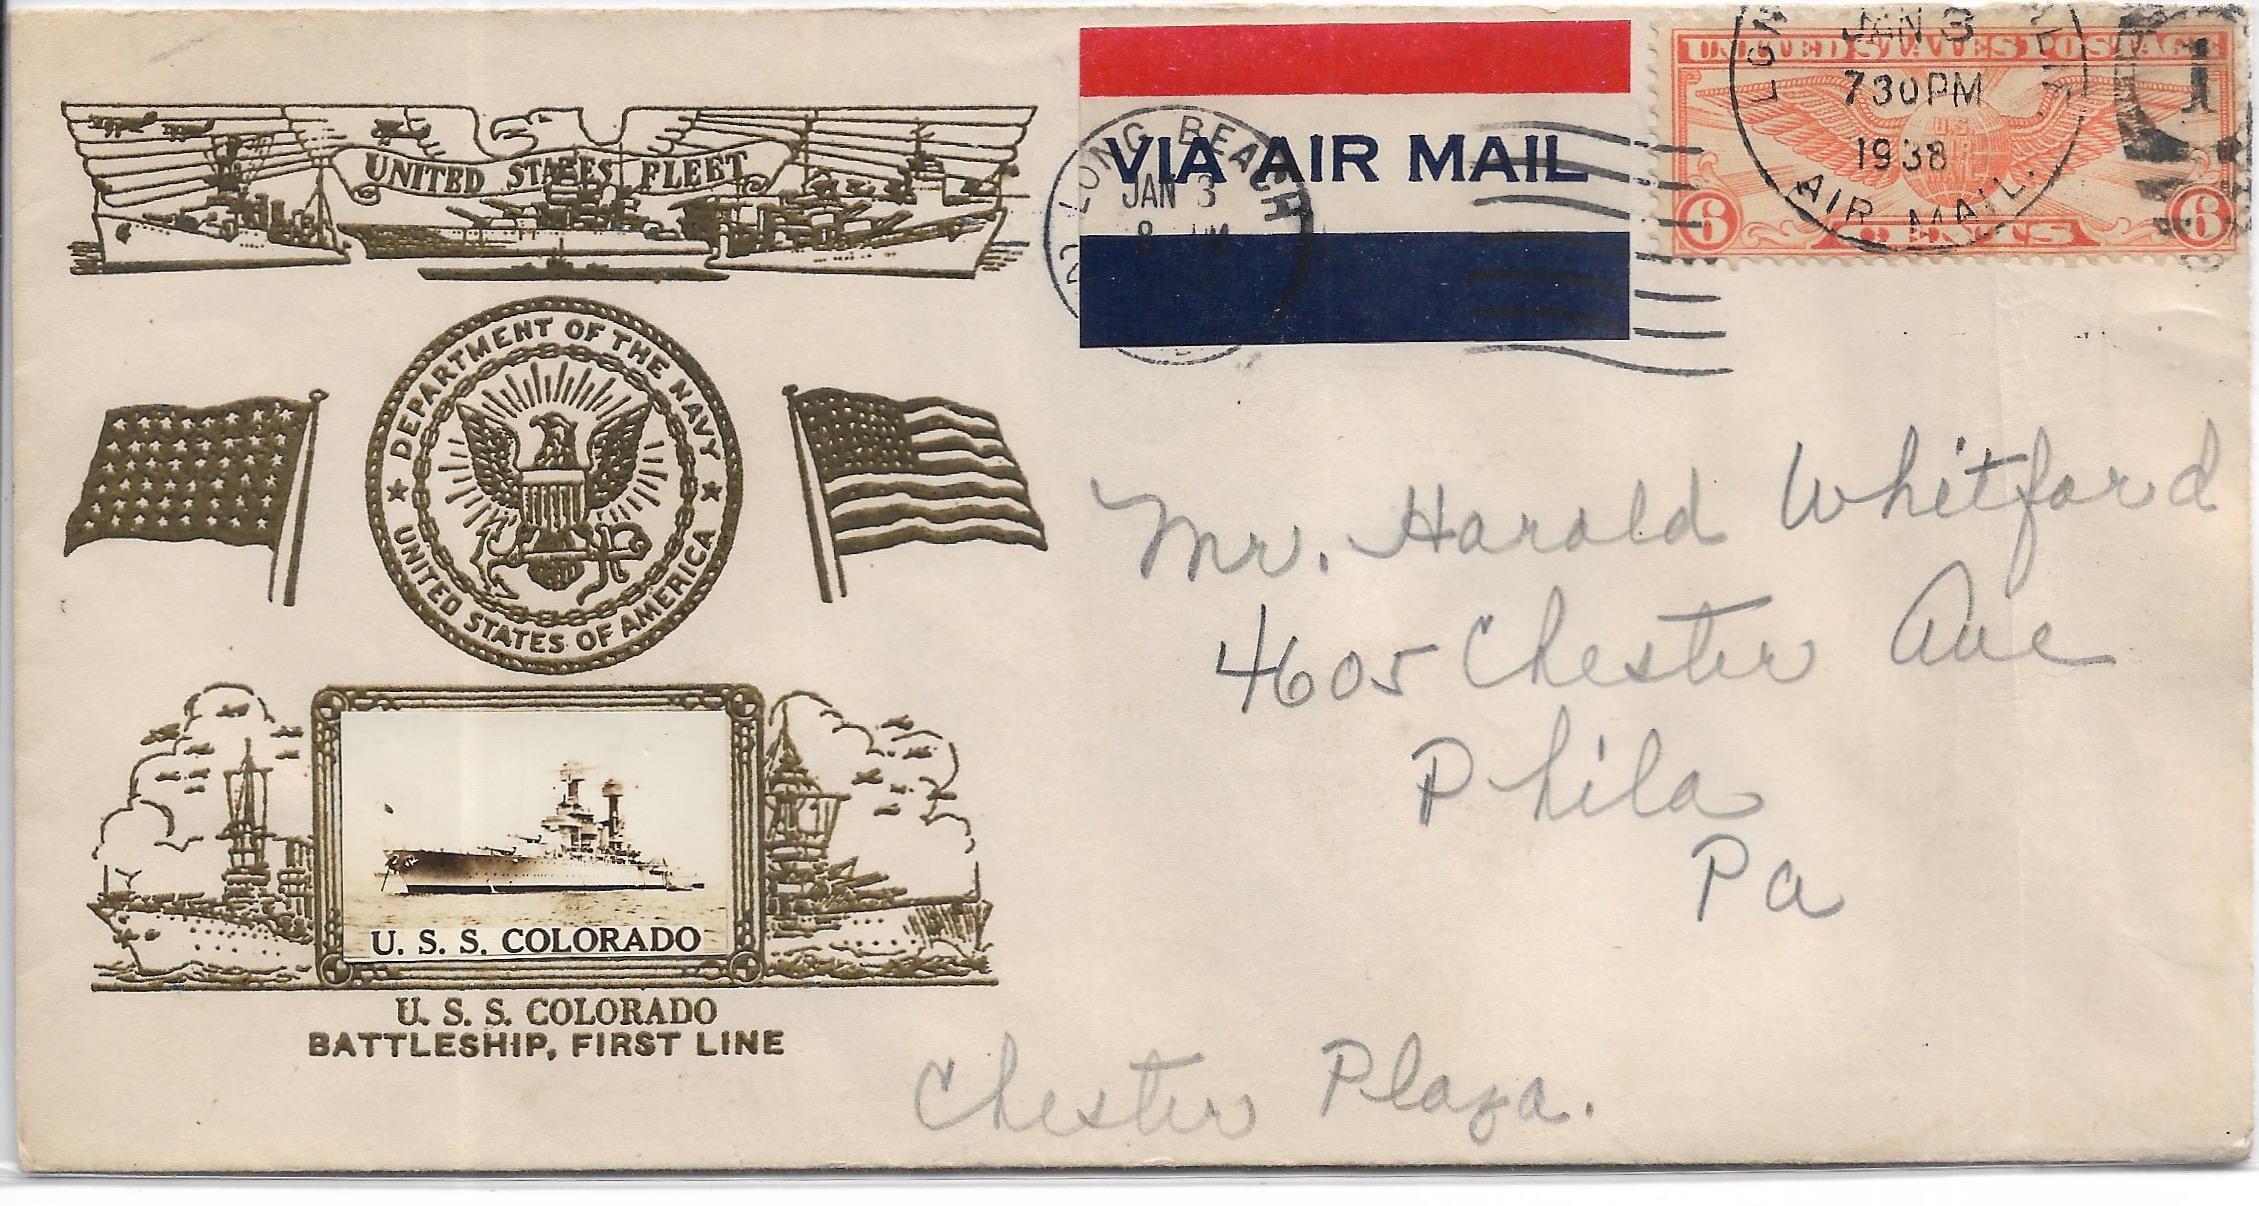 UNITED STATES FLEET
DEPARTMENT OF THE NAVY
UNITED STATES OF AMERICA
U. S. S. COLORADO
U. S. S. COLORADO
BATTLESHIP, FIRST LINE
VIA AIR MAIL
LONG BEACH
JAN 3
2
UNITED STATES POSTAGE
U.S.
AIR
MAIL
6 CENTS 6
JAN 3
730PM
1938
AIR MAIL.
1
Mr. Harold Whitford
4605 Chester Ave
Phila
Pa
Chester Plaza.